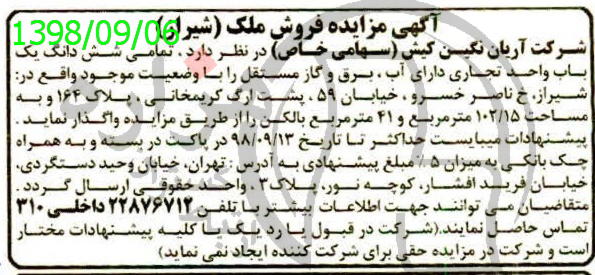 آگهی مزایده فروش ملک (شیراز)
1398/09/06
شرکت آریان نگین کیش (سهامی خاص) در نظر دارد ، تمامی شش دانگ یک
باب واحد تجاری دارای آب ، برق و گاز مستقل را با وضعیت موجود واقع در:
شیراز، خ ناصر خسرو ، خیابان ۵۹ ، پشت ارگ کریمخانی ، پلاک ۱۶۴ و به
مساحت ۱۰۲/۱۵ مترمربع و ۴۱ مترمربع بالکن را از طریق مزایده واگذار نماید .
پیشنهادات میبایست حداکثر تا تاریخ ۹۸/۰۹/۱۳ در پاکت در بسته و به همراه
چک بانکی به میزان ۵ ٪ مبلغ پیشنهادی به آدرس : تهران، خیابان وحید دستگردی،
خیابان فرید افشار، کوچه نور، پلاک ۳ ، واحد حقوقی ارسال گردد .
متقاضیان می توانند جهت اطلاعات بیشتر با تلفن ۲۲۸۷۶۷۱۲ داخلی ۳۱۰
تماس حاصل نمایند.(شرکت در قبول یا رد یک یا کلیه پیشنهادات مختار
است و شرکت در مزایده حقی برای شرکت کننده ایجاد نمی نماید)